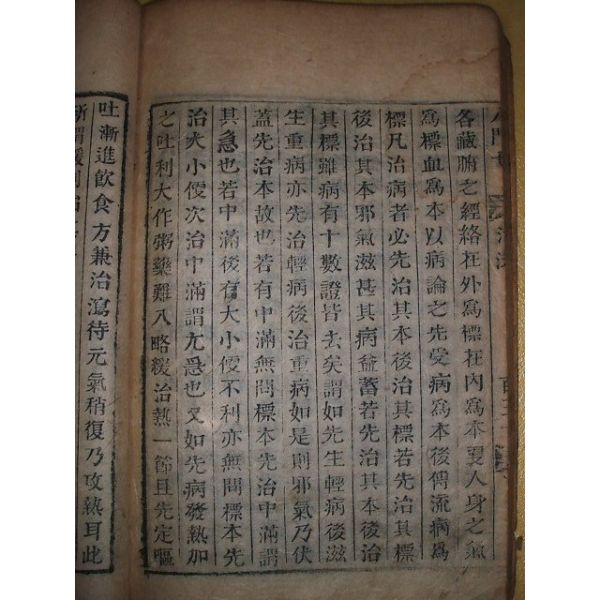 各藏腑之經絡在外爲標在内爲本更人身之氣
爲標血爲本以病論之先受病爲本後傳流病爲
標凡治病者必先治其本後治其標若先治其標
後治其本邪氣滋甚其病益蓄若先治其本後治
其標雖病有十數證皆去矣謂如先生輕病後滋
生重病亦先治輕病後治重病如是則邪氣乃伏
蓋先治本故也若有中滿無問標本先治中滿謂
其急也若中滿後有大小便不利亦無問標本先
治大小便次治中滿謂尤急也又如先病發熱加
之吐利大作粥藥難入略緩治熱一節且先定嘔
吐漸進飲食方兼治瀉待元氣稍復乃攻熱耳此
所謂緩則治